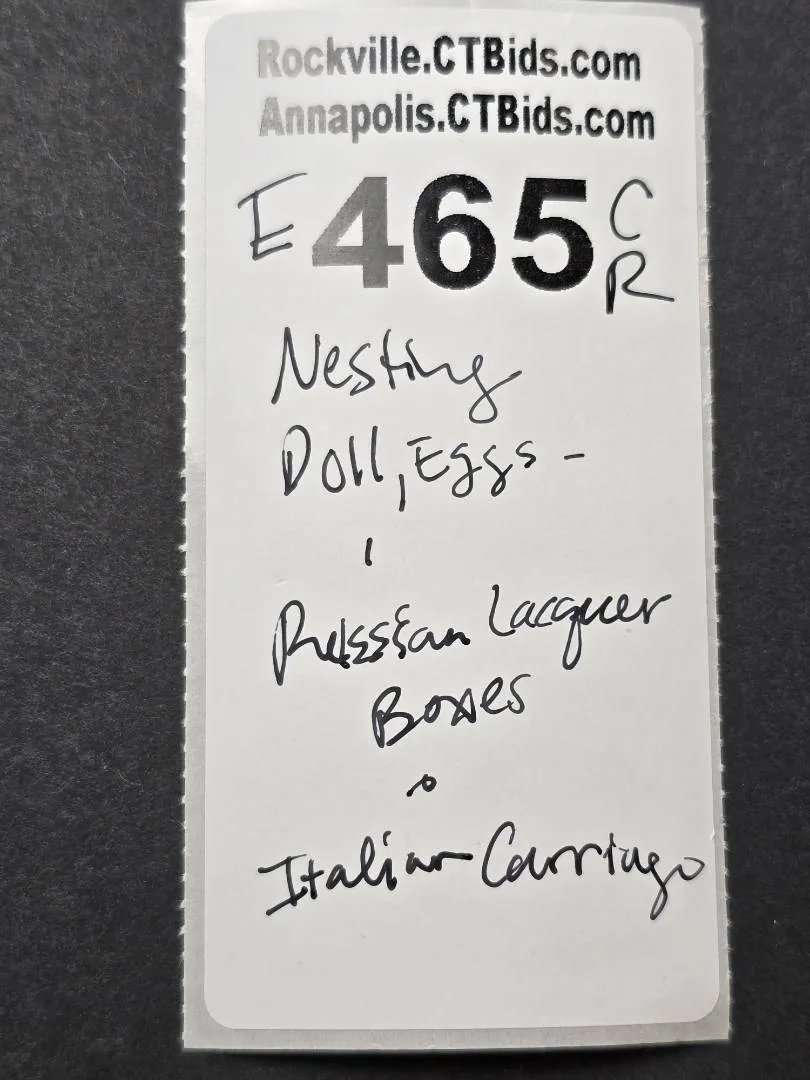 Rockville.CTBids.com
Annapolis.CTBids.com
E 465 C R
Nesting
Doll, Eggs -
Russian Lacquer
Boxes
Italian Carriage